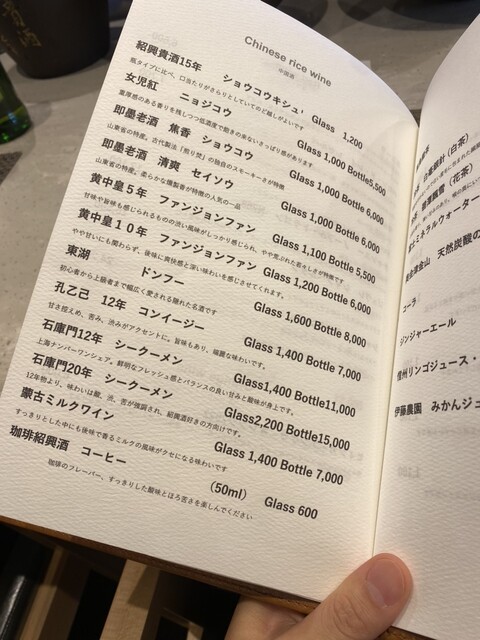 Chinese rice wine
中国酒
紹興貴酒15年 ショウコウキシュ・ Glass 1,200
瓶タイプに比べ、口当たりがさらりとしていてのど越しがよいです
女児紅 ニョジコウ Glass 1,000 Bottle5,500
重厚感のある香りを残しつつ低濃度で飽きの来ないさっぱり感があります
即墨老酒 焦香 ショウコウ Glass 1,000 Bottle 6,000
山東省の特産。古代製法「煎り焚」の独自のスモーキーさが特徴
即墨老酒 清爽 セイソウ Glass 1,000 Bottle 6,000
山東省の特産。柔らかな燻製香が特徴の人気の一品
黄中皇5年 ファンジョンファン Glass 1,100 Bottle 5,500
甘味や旨味も感じられるものの渋い風味がしっかり感じられ、やや荒ぶれた若々しさが特徴です
黄中皇10年 ファンジョンファン Glass 1,200 Bottle 6,000
やや甘いにも関わらず、後味に爽快感と深い味わいを感じさせてくれます。
東湖 ドンフー Glass 1,600 Bottle 8,000
初心者から上級者まで幅広く愛される隠れた名酒です
孔乙己 12年 コンイージー Glass 1,400 Bottle 7,000
甘さ控えめ、苦み、渋みがアクセントに。旨味もあり、端麗な味わいです。
石庫門12年 シークーメン Glass1,400 Bottle11,000
上海ナンバーワンシェア。鮮明なフレッシュ感とバランスの良い甘みと酸味が身上です。
石庫門20年 シークーメン Glass2,200 Bottle15,000
12年物より、味わいは酸、渋、苦が強調され、紹興酒好きの方向けです。
蒙古ミルクワイン Glass 1,400 Bottle 7,000
すっきりとした中にも後味で香るミルクの風味がクセになる味わいです
珈琲紹興酒 コーヒー (50ml) Glass 600
珈琲のフレーバー、すっきりした酸味とほろ苦さを楽しんでください
白毫銀針(白茶)
碧潭飄雪(花茶)
ミネラルウォーター
奥会津金山 天然炭酸の
コーラ
ジンジャーエール
信州リンゴジュース・
伊藤農園 みかんジュ